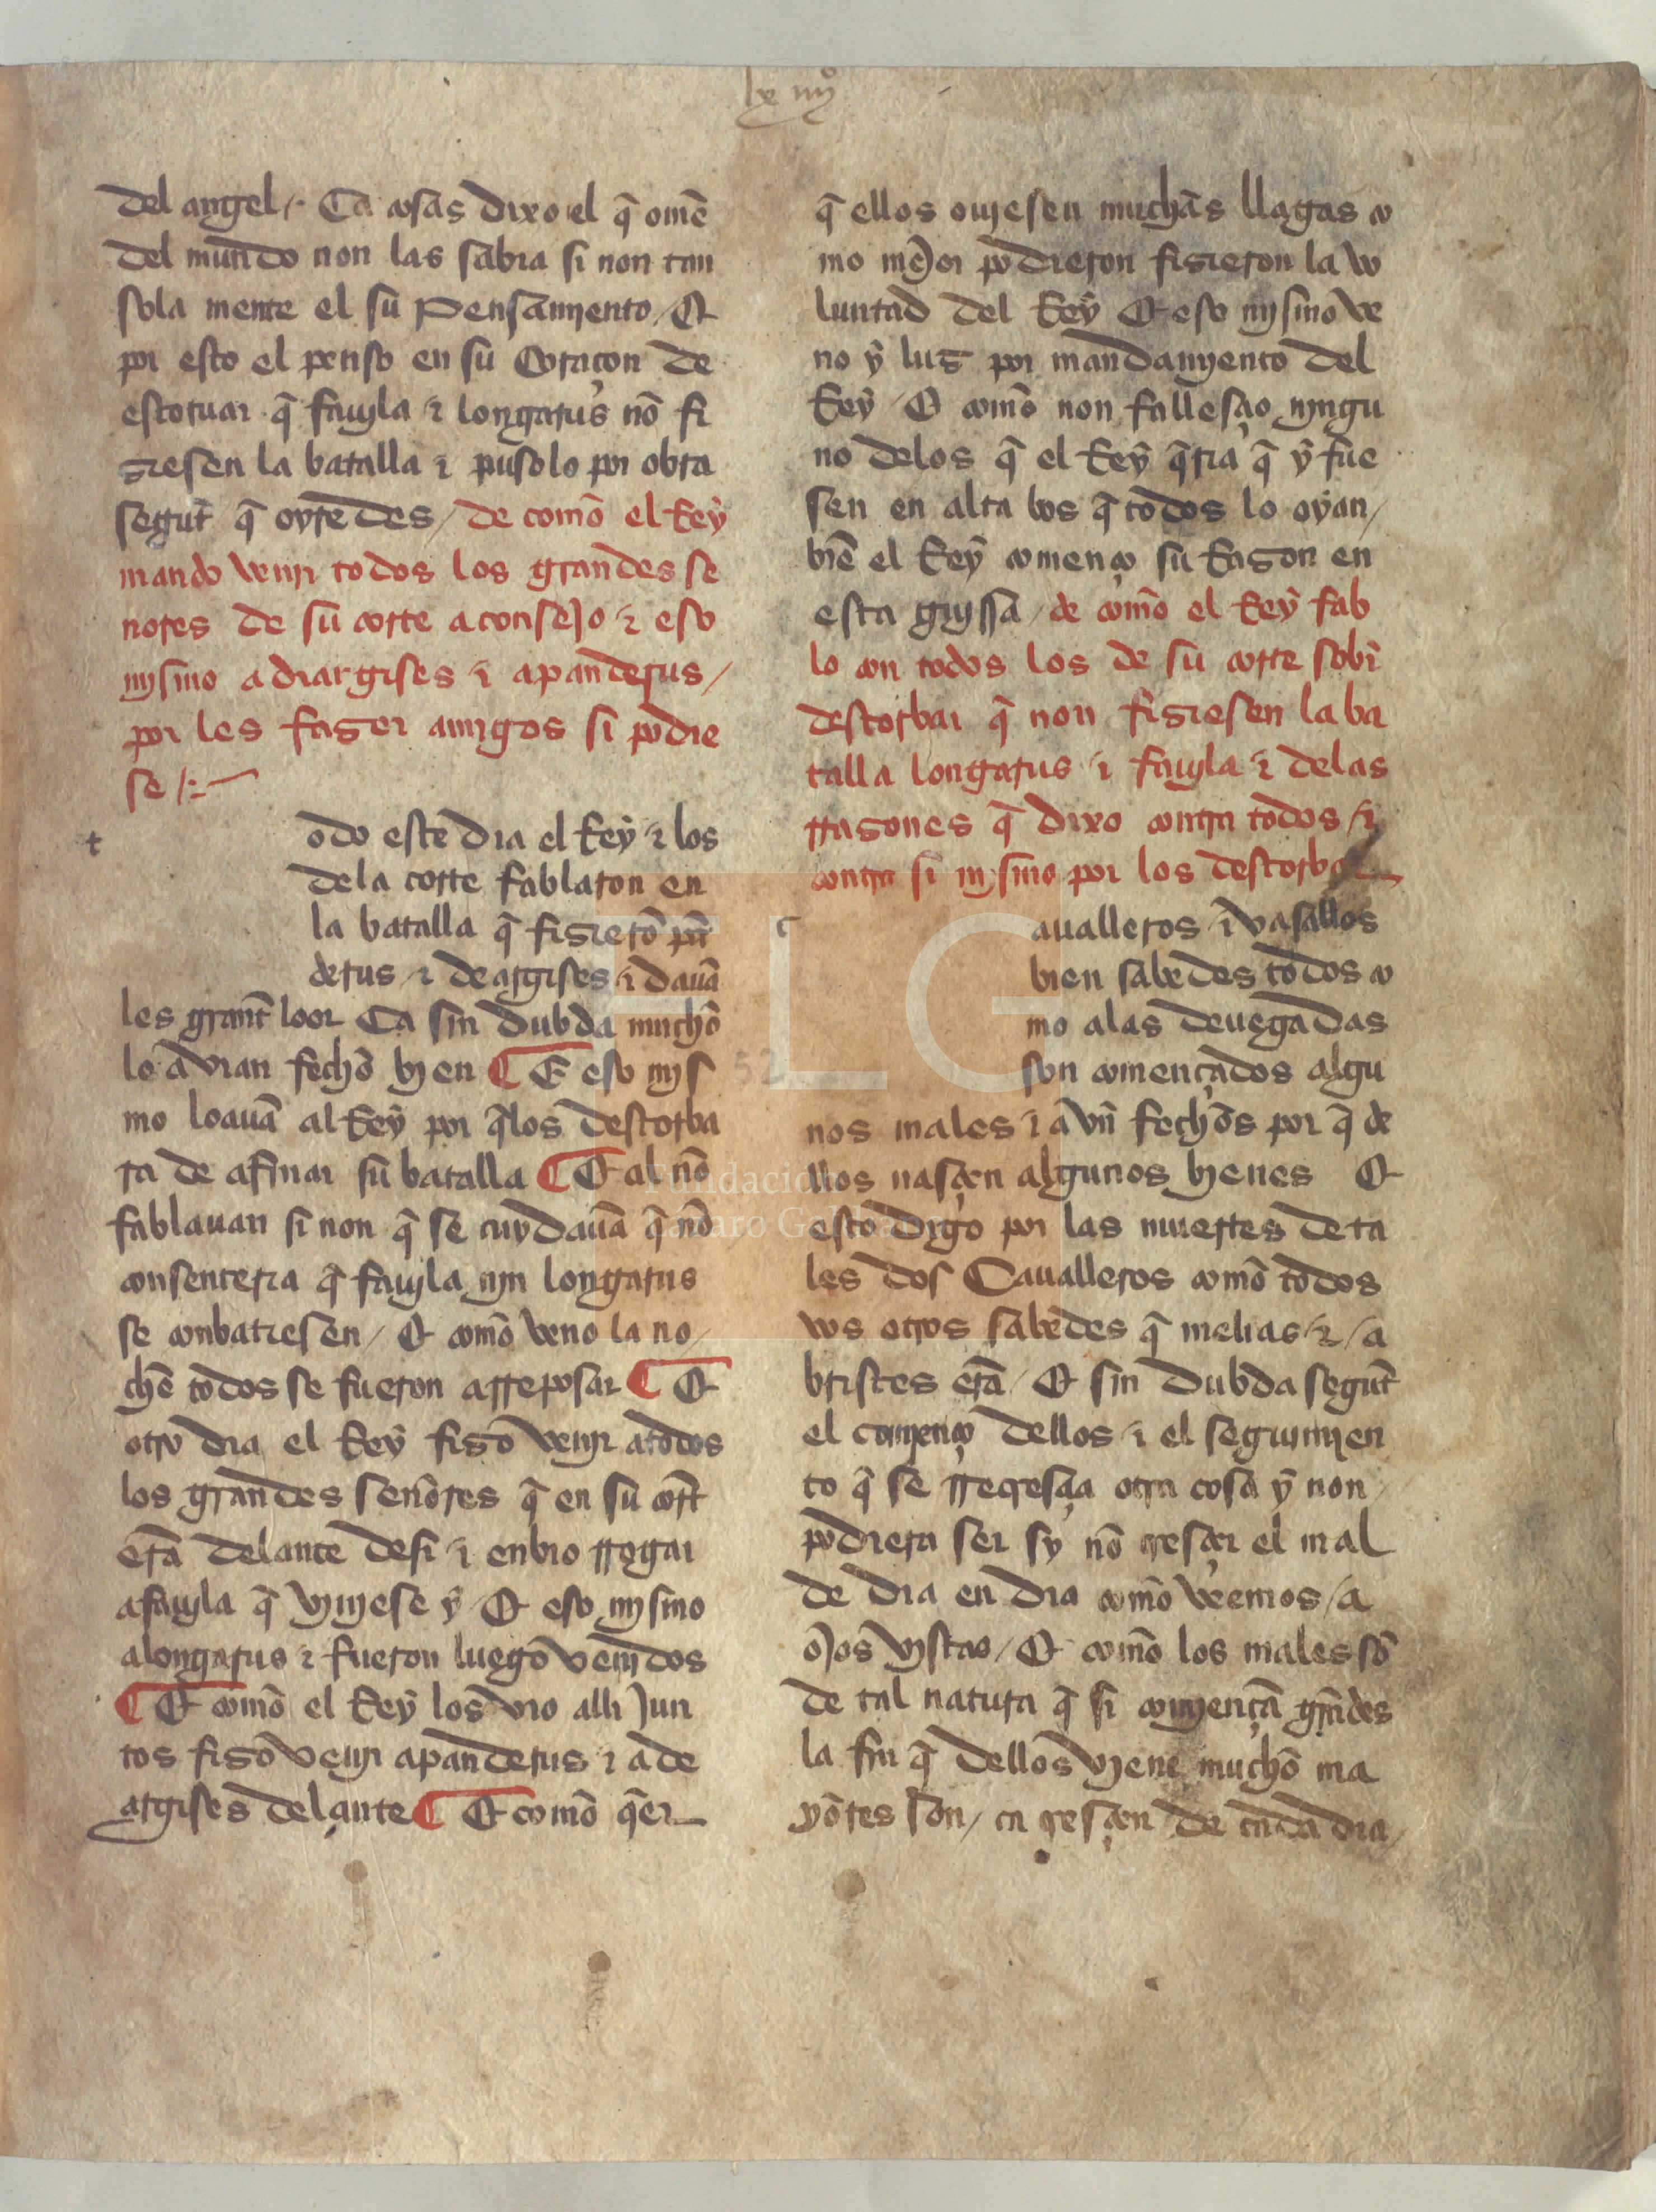 lxiiijº
del angel /· Ca cosas dixo el q̃ omẽ
del mundo non las sabia si non tan
sola mente el su pensamyento / Et
por esto el penso en su coraçon de
estoruar q̃ fauyla ⁊ longarus nõ fi
ziesen la batalla ⁊ pusolo por obra
segũt q̃ oyredes / de comõ el Rey
mando venjr todos los grandes se
nores de su corte a consejo ⁊ eso
mjsmo a diargises ⁊ a panderus /
por les fazer amigos si podie
se /:~
t
odo este dia el Rey ⁊ los
de la corte fablaron en
la batalla q̃ fizierõ pã
derus ⁊ deargises ⁊ dauã
les grant loor Ca sin dubda muchõ
lo avian fechõ bien ¶ E eso mjs
mo loauã al Rey por q̃ los destorba
ra de afinar su batalla ¶ Et al nõ
fablauan si non q̃ se cuydauã q̃ nõ
consenteria q̃ fauyla njn longarus
se conbatiesen / Et comõ veno la no /
chẽ todos se fueron a rreposar ¶ Et
otro dia el Rey fizo venjr a todos
los grandes senõres q̃ en su cort
erã delante desi ⁊ enbio rrogar
a fauyla q̃ vinjese y / Et eso mjsmo
a longarus ⁊ fueron luego venjdos
¶ Et comõ el Rey los vio alli Jun
tos fizo venjr a panderus ⁊ a de
argises delante ¶ Et comõ q̃er
q̃ ellos oujesen muchãs llagas co
mo mẽjor podieron fizieron la vo
luntad del Rey Et eso mjsmo ve
no y luz por mandamyento del
Rey / Et comõ non fallesçio njngu
no delos q̃ el Rey q̃ria q̃ y fue
sen en alta bos q̃ todos lo oyan /
biẽ el Rey començo su Razon en
esta guyssa / de comõ el Rey fab
lo con todos los de su corte sobr̃
destorbar q̃ non fiziesen la ba
talla longarus ⁊ fauyla ⁊ delas
rrazones q̃ dixo contra todos / ⁊
contra si mjsmo por los destorbar
c
aualleros ⁊ vasallos
bien sabedes todos co
mo alas deuegadas
son comencados algu
nos males ⁊ avñ fechõs por q̃ de
llos nasçen algunos bienes Et
esto digo por las muertes de ta
les dos Caualleros comõ todos
vos otros sabedes q̃ melias / ⁊ / a
bristes erã / Et sin dubda segũt
el comienço dellos ⁊ el seguimjen
to q̃ se rrecresçia otra cosa y non
podiera ser sy nõ cresçer el mal
de dia en dia comõ veemos / a
ojos vistas / Et comõ los males sõ
de tal natura q̃ si comjençã grãdes
la fin q̃ dellos viene muchõ ma
yõres son / ca cresçen de cada dia /
52
FLG
Fundación
Lázaro Galdiano